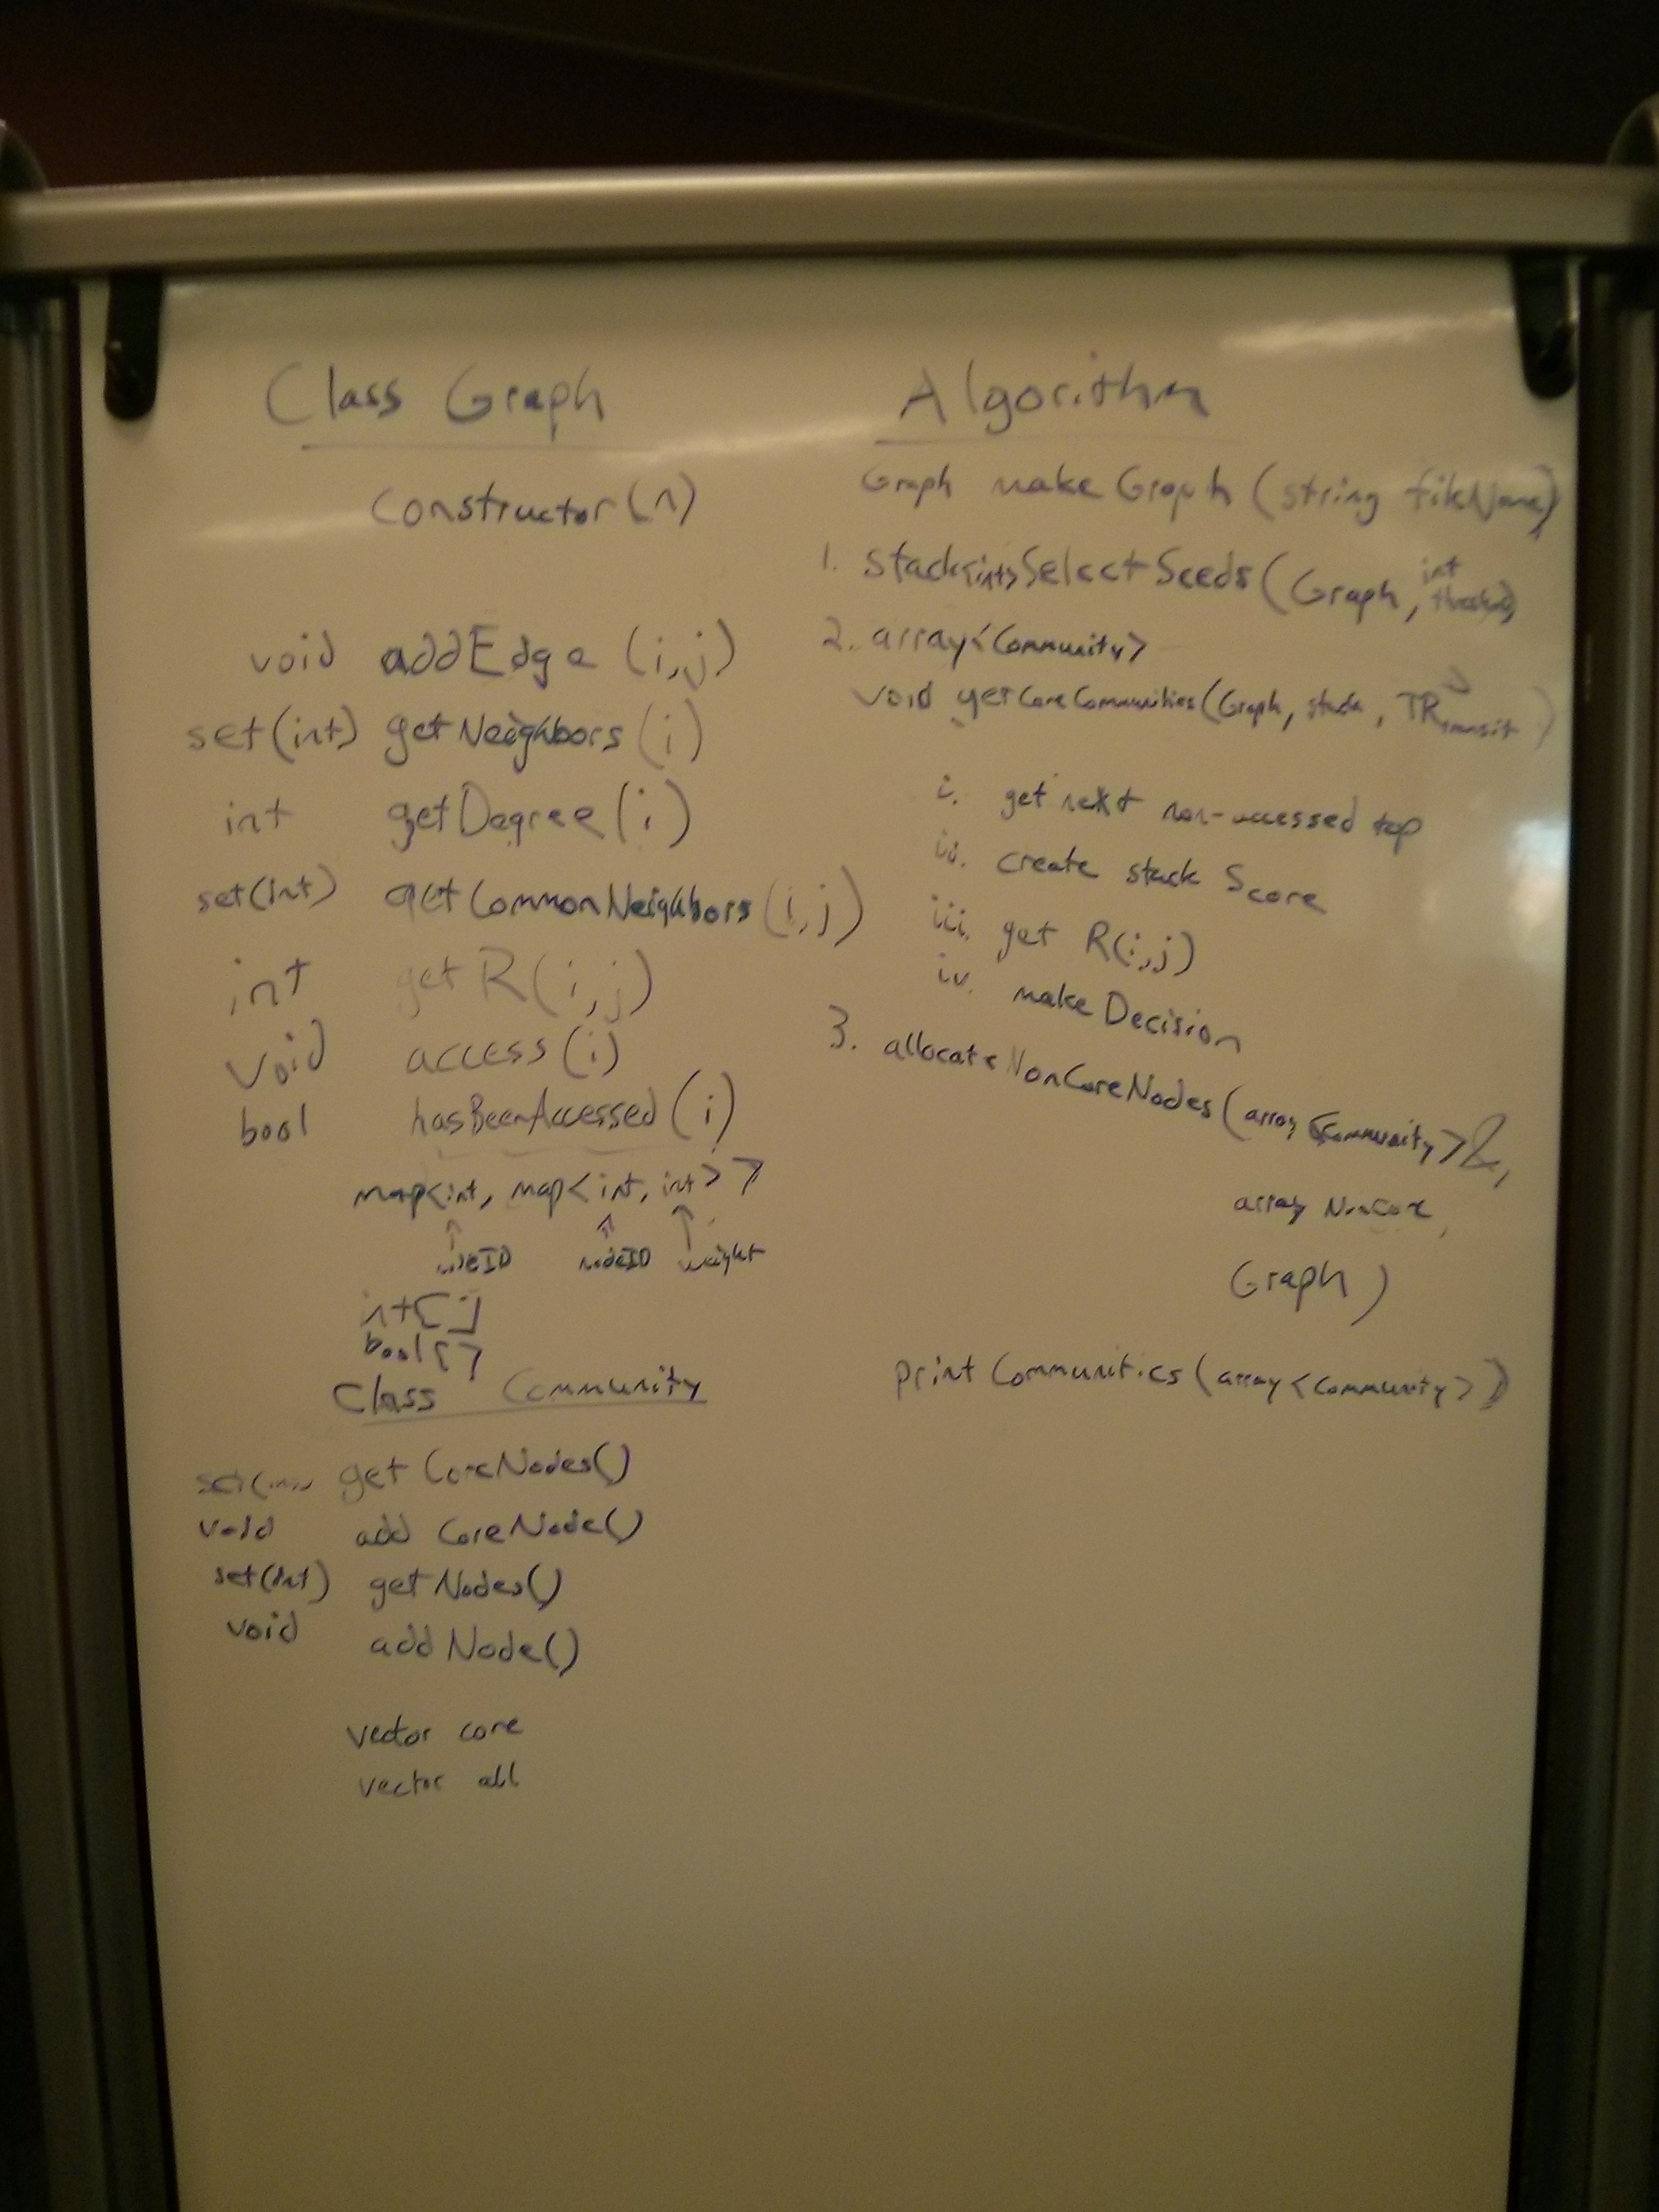 Class Graph
constructor(n)
void addEdge (i,j)
set(int) getNeighbors (i)
int getDegree (i)
set(int) getCommonNeighbors (i,j)
int getR(i,j)
void access(i)
bool hasBeenAccessed (i)
map<int, map<int, int>>
nodeID nodeID weight
int[]
bool[]
Class Community
get CoreNodes()
void add CoreNode()
set(int) getNodes()
void addNode()
vector core
vector all
Algorithm
Graph makeGraph (string fileName)
1. stack<int> SelectSeeds (Graph, int threshold)
2. array<Community>
void getCoreCommunities(Graph, stack, TR
i. get next non-accessed top
ii. create stack Score
iii. get R(i,j)
iv. make Decision
3. allocateNonCoreNodes (array <Community> &,
array NonCore,
Graph)
print Communities (array <Community>)